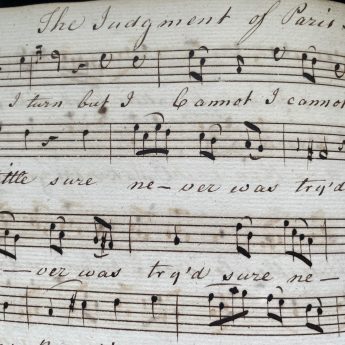 The Judgment of Paris
I turn but I Cannot I cannot
little sure ne-ver was try'd
-ver was try'd sure ne-